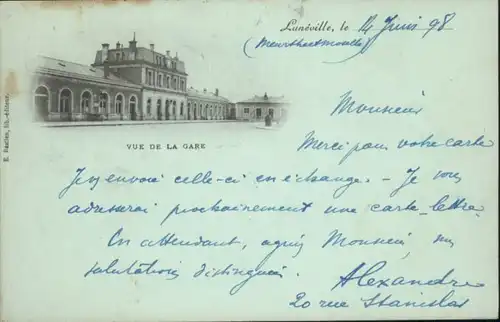 Lunéville, le 14 Juin 98
(Meurthe et Moselle)
Monsieur
Merci pour votre carte
VUE DE LA GARE
Je vous envoie celle-ci en échange. - Je vous
adresserai prochainement une carte-lettre.
En attendant, agréez Monsieur, mes
salutations distinguées.
Alexandre
20 rue Stanislas
E. Bastien, lib.-éditeur.